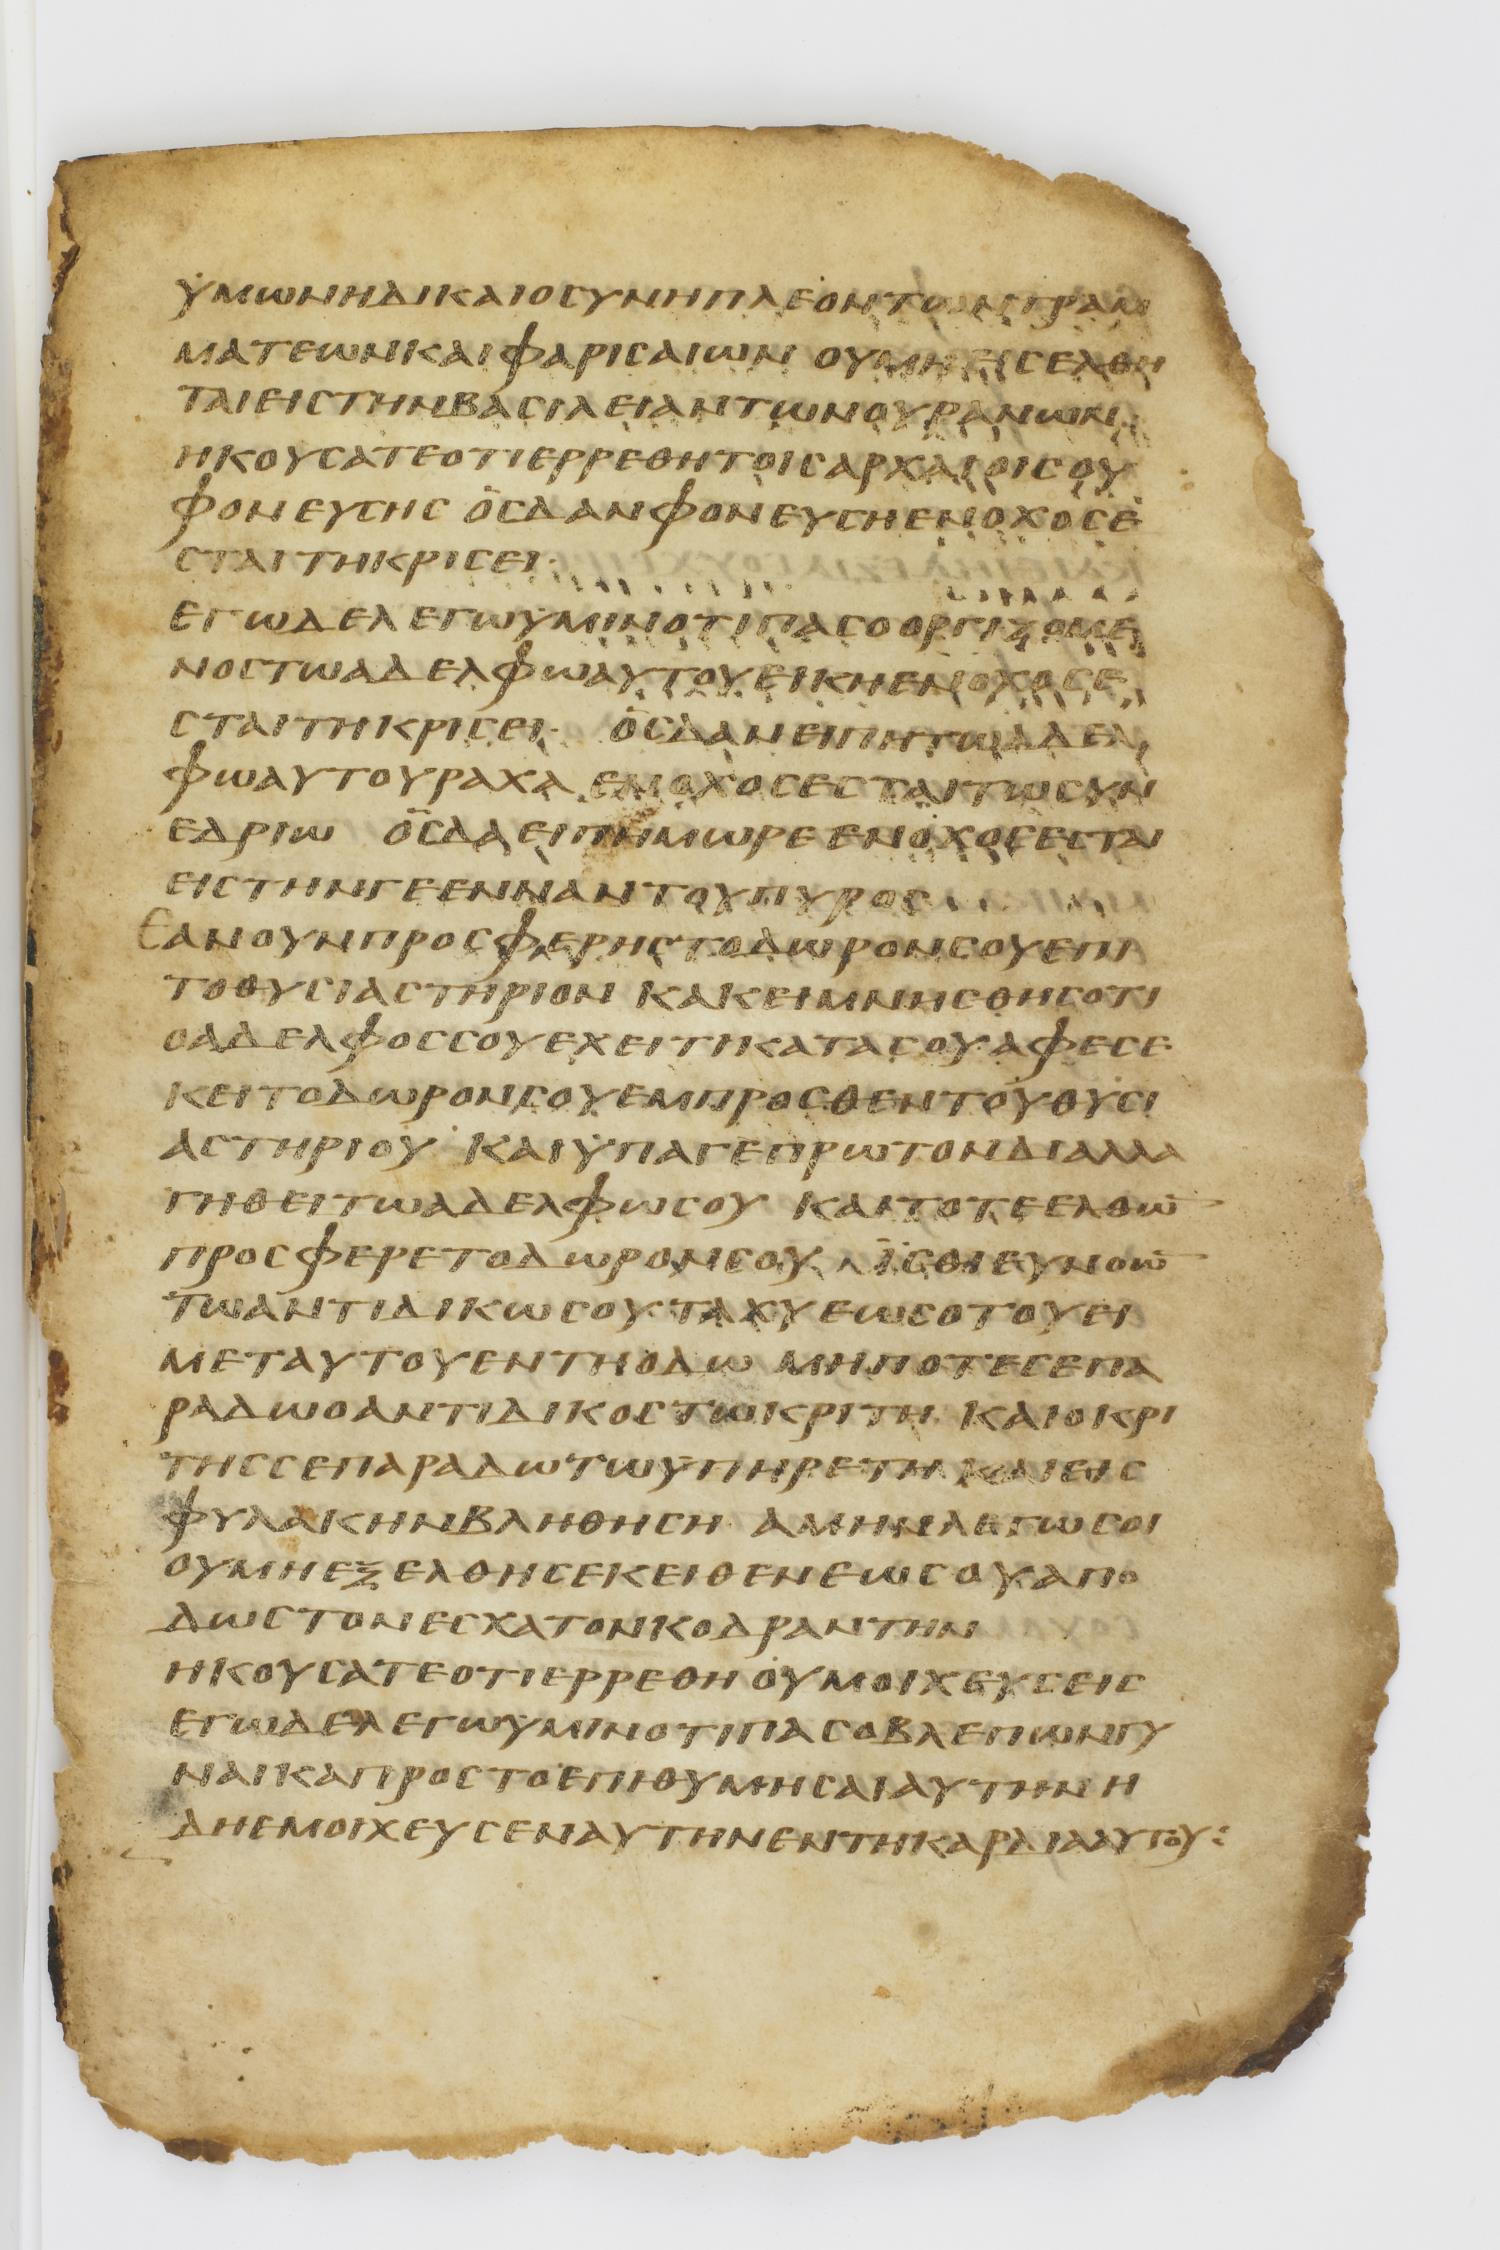 ΫΜΩΝΗΔΙΚΑΙΟCΥΝΗΠΛΕΟΝΤΩΝΓΡΑΜ
ΜΑΤΕΩΝΚΑΙΦΑΡΙCΑΙΩΝ ΟΥΜΗΕΙCΕΛΘΗ
ΤΑΙΕΙCΤΗΝΒΑCΙΛΕΙΑΝΤΩΝΟΥΡΑΝΩΝ·
ΗΚΟΥCΑΤΕΟΤΙΕΡΡΕΘΗΤΟΙCΑΡΧΑΙΟΙCΟΥ
ΦΟΝΕΥCΗC ΟCΔΑΝΦΟΝΕΥCΗΕΝΟΧΟCΕ
CΤΑΙΤΗΚΡΙCΕΙ·
ΕΓΩΔΕΛΕΓΩΫΜΙΝΟΤΙΠΑCΟΟΡΓΙΖΟΜΕ
ΝΟCΤΩΑΔΕΛΦΩΑΥΤΟΥΕΙΚΗΕΝΟΧΟCΕ
CΤΑΙΤΗΚΡΙCΕΙ· ΟCΔΑΝΕΙΠΗΤΩΑΔΕΛ
ΦΩΑΥΤΟΥΡΑΧΑ ΕΝΟΧΟCΕCΤΑΙΤΩCΥΝ
ΕΔΡΙΩ ΟCΔΑΕΙΠΗΜΩΡΕΕΝΟΧΟCΕCΤΑΙ
ΕΙCΤΗΝΓΕΕΝΝΑΝΤΟΥΠΥΡΟC
ΕΑΝΟΥΝΠΡΟCΦΕΡΗCΤΟΔΩΡΟΝCΟΥΕΠΙ
ΤΟΘΥCΙΑCΤΗΡΙΟΝ ΚΑΚΕΙΜΝΗCΘΗCΟΤΙ
ΟΑΔΕΛΦΟCCΟΥΕΧΕΙΤΙΚΑΤΑCΟΥ·ΑΦΕCΕ
ΚΕΙΤΟΔΩΡΟΝCΟΥΕΜΠΡΟCΘΕΝΤΟΥΘΥCΙ
ΑCΤΗΡΙΟΥ· ΚΑΙΫΠΑΓΕΠΡΩΤΟΝΔΙΑΛΛΑ
ΓΗΘΕΙΤΩΑΔΕΛΦΩCΟΥ ΚΑΙΤΟΤΕΕΛΘΩ̅
ΠΡΟCΦΕΡΕΤΟΔΩΡΟΝCΟΥ ΪCΘΙΕΥΝΟΩ̅
ΤΩΑΝΤΙΔΙΚΩCΟΥ·ΤΑΧΥΕΩCΟΤΟΥΕΙ
ΜΕΤΑΥΤΟΥΕΝΤΗΟΔΩ ΜΗΠΟΤΕCΕΠΑ
ΡΑΔΩΟΑΝΤΙΔΙΚΟCΤΩΚΡΙΤΗ· ΚΑΙΟΚΡΙ
ΤΗCCΕΠΑΡΑΔΩΤΩΫΠΗΡΕΤΗ ΚΑΙΕΙC
ΦΥΛΑΚΗΝΒΛΗΘΗCΗ· ΑΜΗΝΛΕΓΩCΟΙ
ΟΥΜΗΕΞΕΛΘΗCΕΚΕΙΘΕΝΕΩCΟΥΑΠΟ
ΔΩCΤΟΝΕCΧΑΤΟΝΚΟΔΡΑΝΤΗΝ
ΗΚΟΥCΑΤΕΟΤΙΕΡΡΕΘΗΟΥΜΟΙΧΕΥCΕΙC
ΕΓΩΔΕΛΕΓΩΫΜΙΝΟΤΙΠΑCΟΒΛΕΠΩΝΓΥ
ΝΑΙΚΑΠΡΟCΤΟΕΠΙΘΥΜΗCΑΙΑΥΤΗΝΗ
ΔΗΕΜΟΙΧΕΥCΕΝΑΥΤΗΝΕΝΤΗΚΑΡΔΙΑΑΥΤΟΥ: